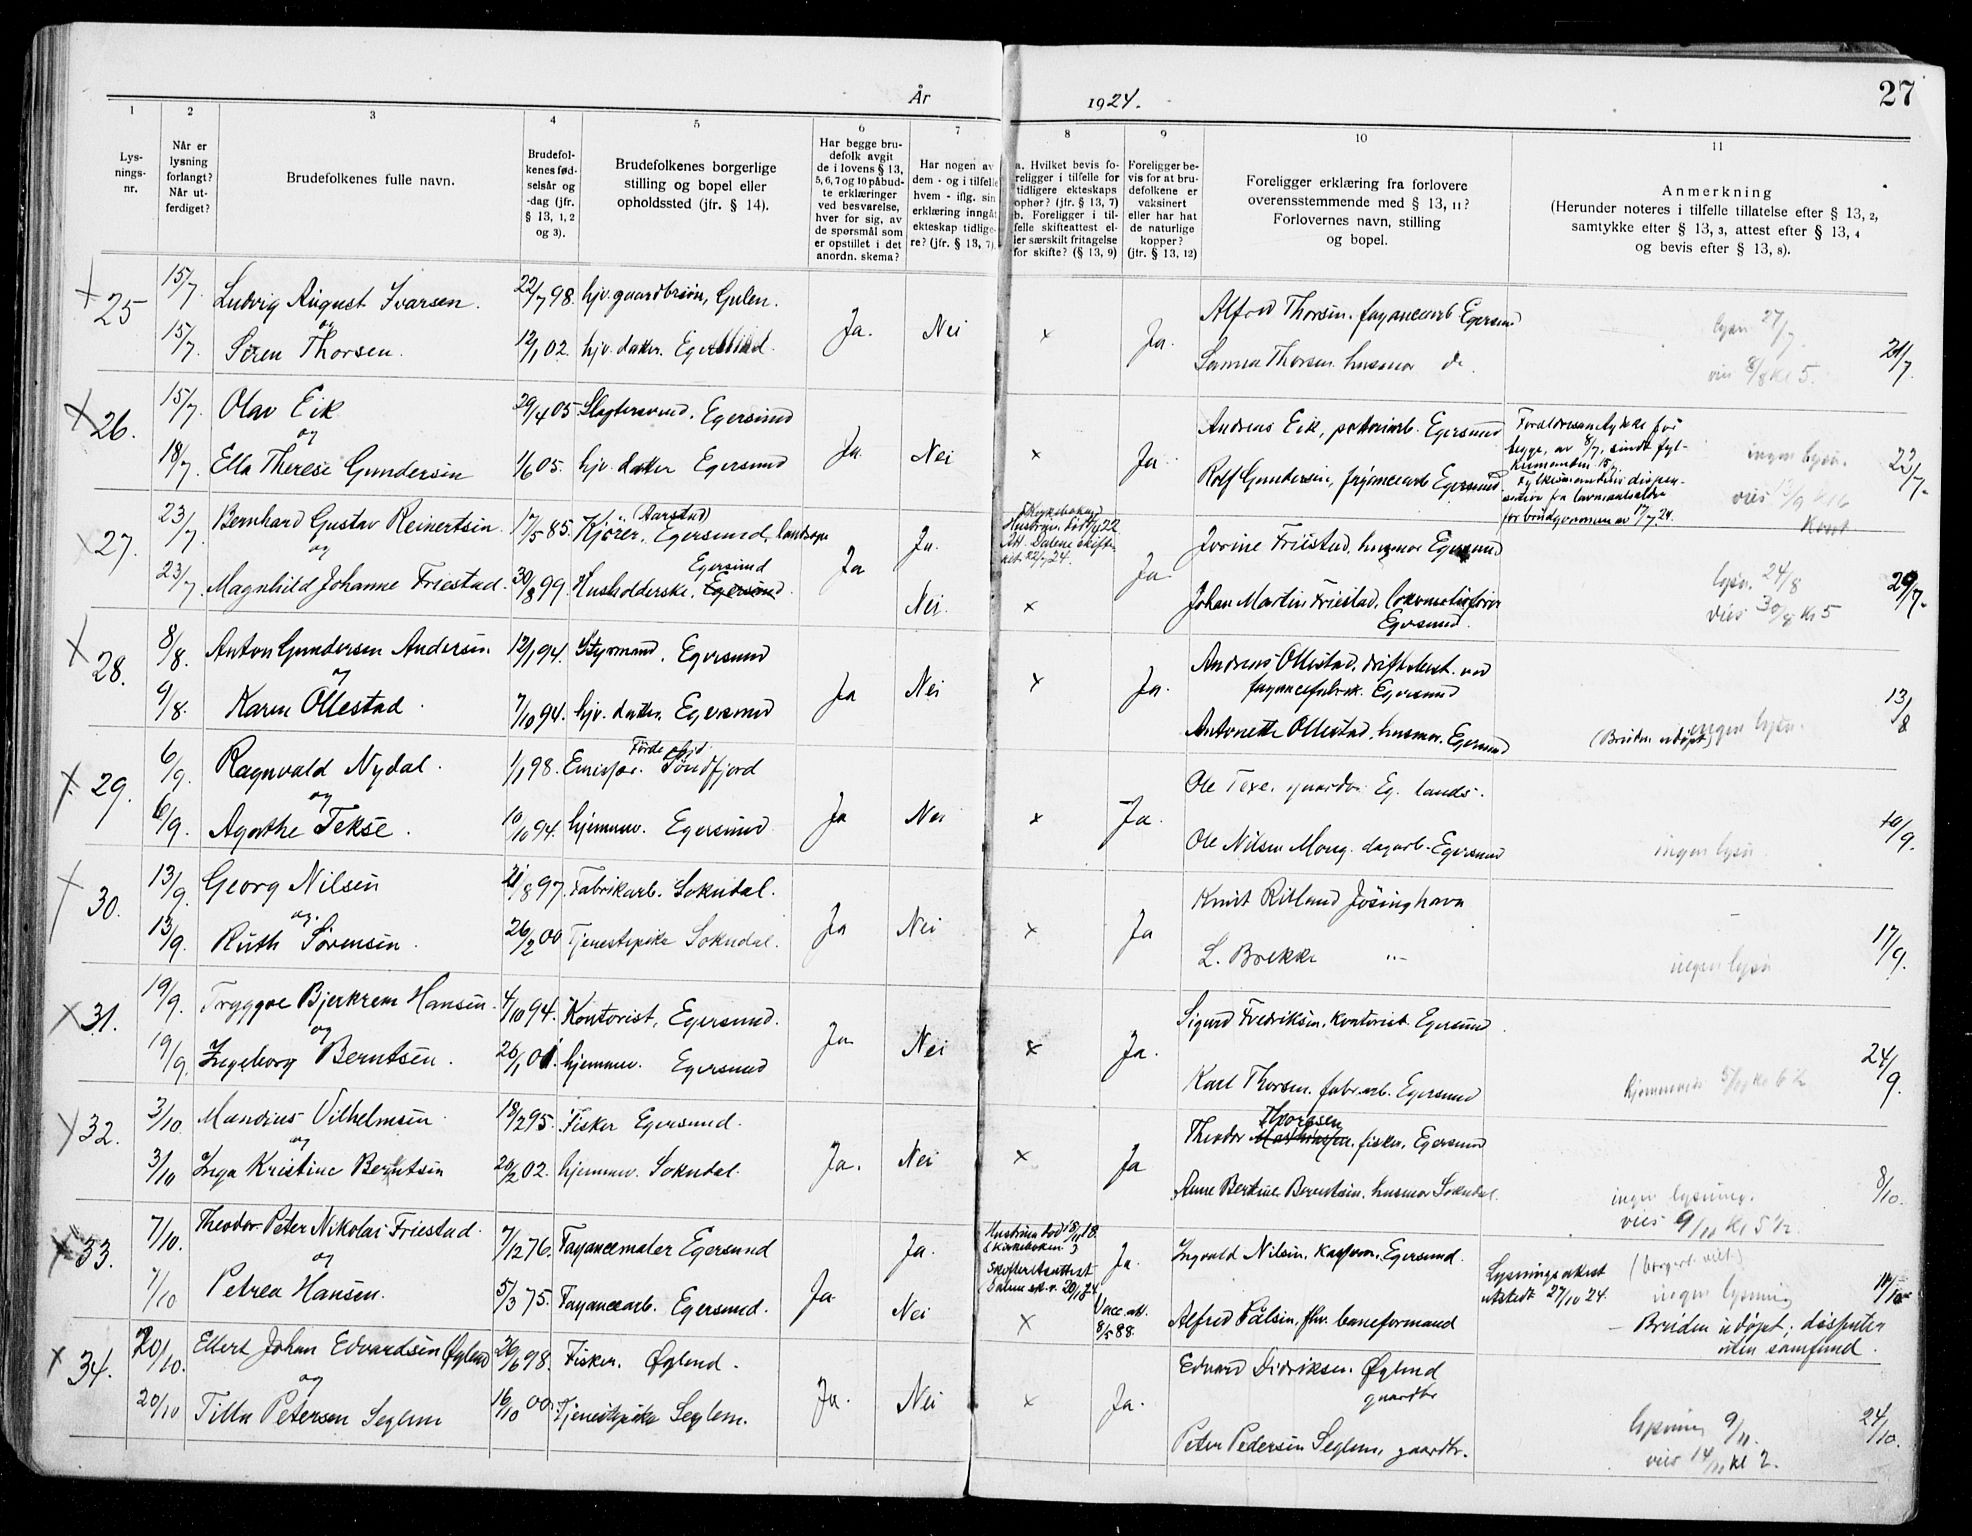 År
1924.
27
1
2
3
4
5
6
7
8
9
10
11
Lys-
nings-
nr.
Når er
lysning
forlangt?
Når ut-
ferdiget?
Brudefolkenes fulle navn.
Brudefol-
kenes fød-
selsår og
-dag (jfr.
§ 13, 1, 2
og 3).
Brudefolkenes borgerlige
stilling og bopel eller
opholdssted (jfr. § 14).
Har begge bru-
defolk avgit
de i lovens § 13,
5, 6, 7 og 10 påbud-
te erklæringer
ved besvarelse,
hver for sig, av
de spørsmål som
er opstillet i det
anordn. skema?
Har nogen av
dem - og i tilfelle
hvem - iflg. sin
erklæring inngåt
ekteskap tidlige-
re? (jfr. § 13, 7).
a. Hvilket bevis fo-
religger i tilfelle for
tidligere ekteskaps
ophør? (jfr. § 13, 7)
b. Foreligger i til-
felle skifteattest el-
ler særskilt fritagelse
for skifte? (§ 13, 9)
Foreligger be-
vis for at bru-
defolkene er
vaksinert
eller har hat
de naturlige
kopper?
(jfr. § 13, 12)
Foreligger erklæring fra forlovere
overensstemmende med § 13, 11?
Forlovernes navn, stilling
og bopel.
Anmerkning
(Herunder noteres i tilfelle tillatelse efter § 13, 2,
samtykke efter § 13, 3, attest efter § 13, 4
og bevis efter § 13, 8).
x 25
15/7. Ludvig August Ivarsen. 22/7 98. hjv. gaardbr.søn, Gulen.
og
15/7. Siren Thorsen. 12/1 02. hjv. datter. Egersund.
Ja. Nei x Ja.
Alfred Thorsen. fayancearb Egersund
Sanna Thorsen. husmor do.
lysn 27/7.
vies 8/8 kl 5.
21/7.
x 26.
15/7. Olav Eik 29/4 05. Slagtersvend. Egersund
og
18/7. Ella Therese Gundersen 1/6 05. hjv. datter Egersund
Ja Nei x Ja.
Andreas Eik, Egersund
Rolf Gundersen, fayancearb Egersund.
Forældresamtykke for
begge, av 8/7, sendt fyl-
kesmanden 15/7.
Fylkesmandens dispen-
sation fra lavmaalsalder
for brudgommen av 17/7 24.
ingen lysn.
22/7.
x 27.
23/7. Bernhard Gustav Reinertsen. 17/5 85. Kjører. (Aarstad) Egersund landsogn
og
23/7. Magnhild Johanne Friestad. 30/8 99. Husholderske. Egersund Egersund.
Ja Ja. Nei. x Ja.
Jorine Friestad, husmor Egersund
Johan Martin Friestad, lokomotivfører
Egersund.
lysn. 24/8
vies 30/8 kl 5
29/7.
x 28.
8/8. Anton Gundersen Andersen. 12/1 94. Styrmand. Egersund
og
9/8. Karen Ollestad. 7/10 94. hjv. datter. Egersund
Ja Nei x Ja.
Andreas Ollestad, driftsbest. ved
fayancefabrik. Egersund
Antonette Ollestad, husmor. Egersund
(Bruden udøpt) ingen lysn.
13/8
x 29.
6/9. Ragnvald Nydal. 1/1 98. Emissær. Førde Søndfjord
og
6/9. Agathe Tekse. 10/10 94. hjemmev. Egersund.
Ja Nei x Ja.
Ole Texe. gaardbr. Eg. lands.
Ole Nilsen Mong. dagarb. Egersund
ingen lysn.
10/9.
x 30.
13/9. Georg Nilsen 21/8 97. Fabrikarb. Sokndal.
og.
13/9. Ruth Sørensen. 26/2 00 Tjenestepike Sokndal.
Ja Nei x Ja
Knut Ritland Jøsinghavn
L. Brekke "-
ingen lysn
17/9.
x 31.
19/9. Tryggve Bjerkrem Hansen. 4/10 94. Kontorist, Egersund.
og
19/9. Ingeborg Berntsen. 26/1 01. hjemmev. Egersund
Ja Nei x Ja.
Sigurd Fredriksen. Kontorist. Egersund.
Karl Thorsen. fabr.arb. Egersund
24/9.
x 32.
3/10. Mandius Vilhelmsen. 18/2 95. Fisker Egersund.
og
3/10 Inga Kristine Berntsen 20/2 02. hjemmev. Sokndal.
Ja. Nei x Ja
Theodor Thorgsen fisker, Egersund
Anne Bertine Berentsen. husmor Sokndal.
ingen lysning.
vies 9/10 kl 5 1/2
8/10.
x 33.
7/10. Theodor Peter Nikolai Friestad. 7/12 76. Fayancemaler Egersund
og
7/10 Petrea Hansen. 5/3 75. Fayancearb. Egersund.
Ja Ja. Nei x Ja.
Vacc. att.
8/5 88.
Ingvald Nilsen. Egersund.
Alfred Pålsen, fhv. baneformand
Lysningsattest
utstedt 27/10 24.
(borgerl. viet)
ingen lysning
- Bruden udøpt; dissenter
uten samfund.
x 34.
20/10. Ellert Johan Edvardsen Øglend 26/6 98. Fisker. Øglend.
og
20/10 Tilla Petersen Seglem 16/10 00. Tjenestepike Seglem.
Ja. Nei x Ja.
Edvard Didriksen. Øglend
gaardbr
Peter Pedersen Seglem, gaardbr.
lysning 9/11.
vies 14/11 kl 2.
24/10.